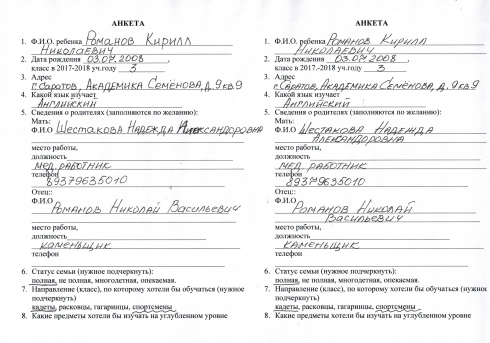 АНКЕТА
1. Ф.И.О. ребенка Романов Кирилл
Николаевич
2. Дата рождения 03.07.2008,
класс в 2017-2018 уч.году 3
3. Адрес
г.Саратов, Академика Семёнова, д.9 кв9
4. Какой язык изучает
Английский
5. Сведения о родителях (заполняются по желанию):
Мать:
Ф.И.О Шестакова Надежда Александровна
место работы,
должность
мед.работник
телефон
89379635010
Отец::
Ф.И.О
Романов Николай Васильевич
место работы,
должность
каменьщик
телефон
6. Статус семьи (нужное подчеркнуть):
полная, не полная, многодетная, опекаемая.
7. Направление (класс), по которому хотели бы обучаться (нужное
подчеркнуть)
кадеты, расковцы, гагаринцы, спортсмены
8. Какие предметы хотели бы изучать на углубленном уровне
АНКЕТА
1. Ф.И.О. ребенка Романов Кирилл
Николаевич
2. Дата рождения 03.07.2008,
класс в 2017.-2018 уч.году 3
3. Адрес
г.Саратов, Академика Семёнова, д.9 кв9
4. Какой язык изучает
Английский
5. Сведения о родителях (заполняются по желанию):
Мать:
Ф.И.О Шестакова Надежда
Александровна
место работы,
должность
мед.работник
телефон
89379635010
Отец::
Ф.И.О
Романов Николай
Васильевич
место работы,
должность
каменьщик
телефон
6. Статус семьи (нужное подчеркнуть):
полная, не полная, многодетная, опекаемая.
7. Направление (класс), по которому хотели бы обучаться (нужное
подчеркнуть)
кадеты, расковцы, гагаринцы, спортсмены
8. Какие предметы хотели бы изучать на углубленном уровне